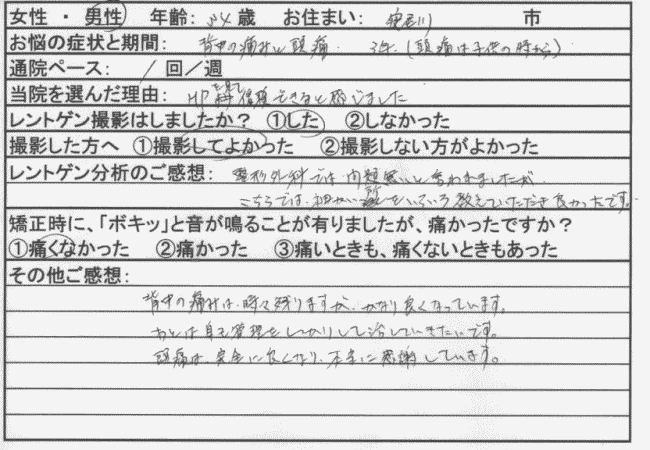 女性 ・ 男性 年齢: 54 歳 お住まい: 寝屋川 市
お悩の症状と期間: 背中の痛みと頭痛. 3年. (頭痛は子供の時から)
通院ペース: 1 回/週
当院を選んだ理由: HPを見て信頼できると感じました
レントゲン撮影はしましたか? ①した ②しなかった
撮影した方へ ①撮影してよかった ②撮影しない方がよかった
レントゲン分析のご感想: 整形外科では問題無いと言われましたが
こちらでは、細かい所をいろいろ教えていただき良かったです。
矯正時に、「ボキッ」と音が鳴ることが有りましたが、痛かったですか?
①痛くなかった ②痛かった ③痛いときも、痛くないときもあった
その他ご感想:
背中の痛みは、時々残りますが、かなり良くなっています。
あとは自己管理をしっかりして治していきたいです。
頭痛は、完全に良くなり、本当に感謝しています。